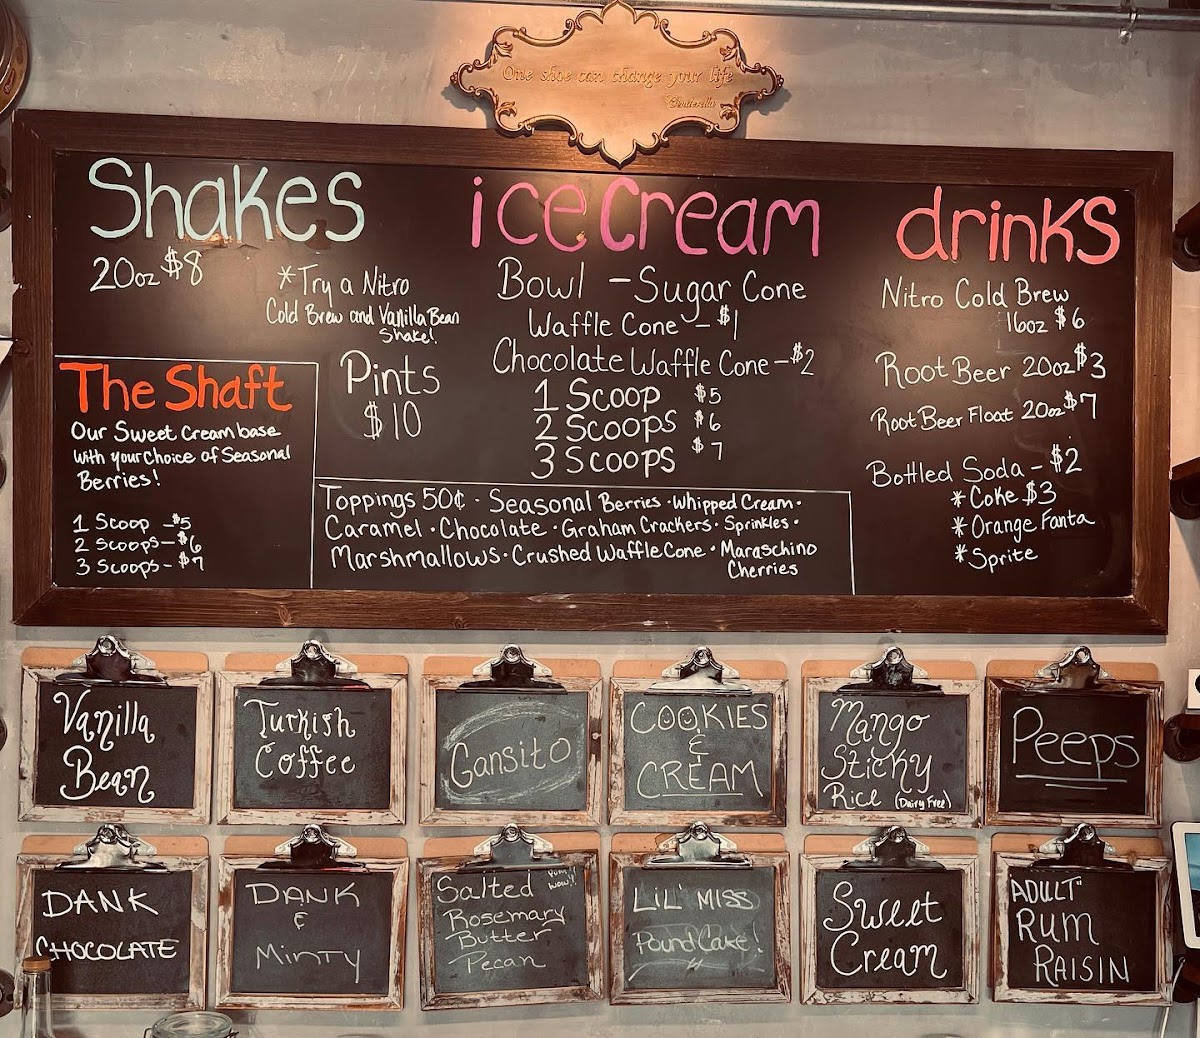 One shoe can change your life
Cinderella
Shakes
20oz $8
*Try a Nitro
Cold Brew and Vanilla Bean
Shake!
The Shaft
Our Sweet Cream base
with your choice of Seasonal
Berries!
1 Scoop - $5
2 Scoops - $6
3 Scoops - $7
Pints
$10
ice cream
Bowl - Sugar Cone
Waffle Cone - $1
Chocolate Waffle Cone - $2
1 Scoop $5
2 Scoops $6
3 Scoops $7
Toppings 50¢ · Seasonal Berries · Whipped Cream ·
Caramel · Chocolate · Graham Crackers · Sprinkles ·
Marshmallows · Crushed Waffle Cone · Maraschino
Cherries
drinks
Nitro Cold Brew
16oz $6
Root Beer 20oz $3
Root Beer Float 20oz $7
Bottled Soda - $2
*Coke $3
*Orange Fanta
*Sprite
Vanilla
Bean
Turkish
Coffee
Gansito
COOKIES
&
CREAM
Mango
Sticky
Rice (Dairy Free)
Peeps
DANK
CHOCOLATE
DANK
&
MINTY
Salted
Rosemary
Butter
Pecan
Yum
Wow!!
LIL' MISS
Pound Cake!
Sweet
Cream
ADULT"
RUM
RAISIN